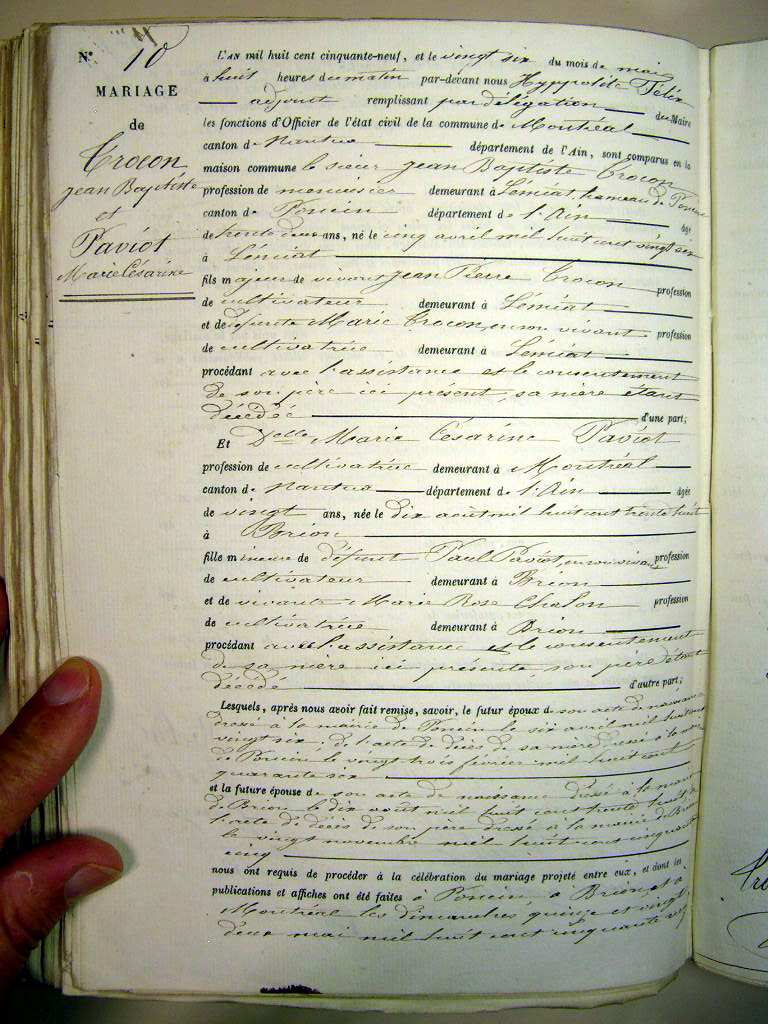 N° 10
MARIAGE
de
Crocon
Jean Baptiste
et
Paviot
Marie Césarine
L'AN mil huit cent cinquante-neuf, et le vingt six du mois de mai
à huit heures du matin par-devant nous Hyppolite Félix
adjoint remplissant par délégation du Maire
les fonctions d'Officier de l'état civil de la commune de Montréal
canton de Nantua département de l'Ain, sont comparus en la
maison commune le sieur Jean Baptiste Crocon
profession de menuisier demeurant à Léméat hameau de Poncin
canton de Poncin département de l'Ain âgé
de trente deux ans, né le cinq avril mil huit cent vingt six
à Léméat
fils majeur de vivant Jean Pierre Crocon profession
de cultivateur demeurant à Léméat
et de défunte Marie Crocon, en son vivant profession
de cultivatrice demeurant à Léméat
procédant avec l'assistance et le consentement
de son père ici présent, sa mère étant
décédée d'une part;
Et Delle Marie Césarine Paviot
profession de cultivatrice demeurant à Montréal
canton de Nantua département de l'Ain âgée
de vingt ans, née le dix août mil huit cent trente huit
à Brion
fille mineure de défunt Paul Paviot, en son vivant profession
de cultivateur demeurant à Brion
et de vivante Marie Rose Chalon profession
de cultivatrice demeurant à Brion
procédant avec l'assistance et le consentement
de sa mère ici présente, son père étant
décédé d'autre part;
Lesquels, après nous avoir fait remise, savoir, le futur époux de son acte de naissance
dressé à la mairie de Poncin le six avril mil huit cent
vingt six, de l'acte de décès de sa mère dressé à la mairie
de Poncin le vingt trois février mil huit cent
quarante six
et la future épouse de son acte de naissance dressé à la mairie
de Brion le dix août mil huit cent trente huit, de
l'acte de décès de son père dressé à la mairie de Brion
le vingt novembre mil huit cent cinquante
cinq
nous ont requis de procéder à la célébration du mariage projeté entre eux, et dont les
publications et affiches ont été faites à Poncin, à Brion et à
Montréal les dimanches quinze et vingt
deux mai mil huit cent cinquante neuf